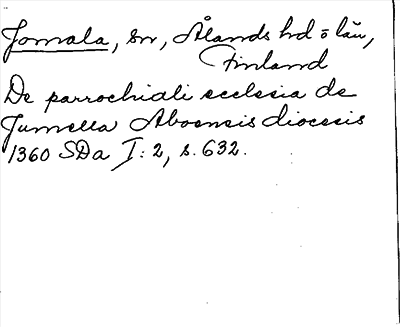 Jomala, sn, Ålands hd o län,
Finland
De parrochiali ecclesia de
Jumella Aboensis diocesis
1360 SDa I: 2, s. 632.